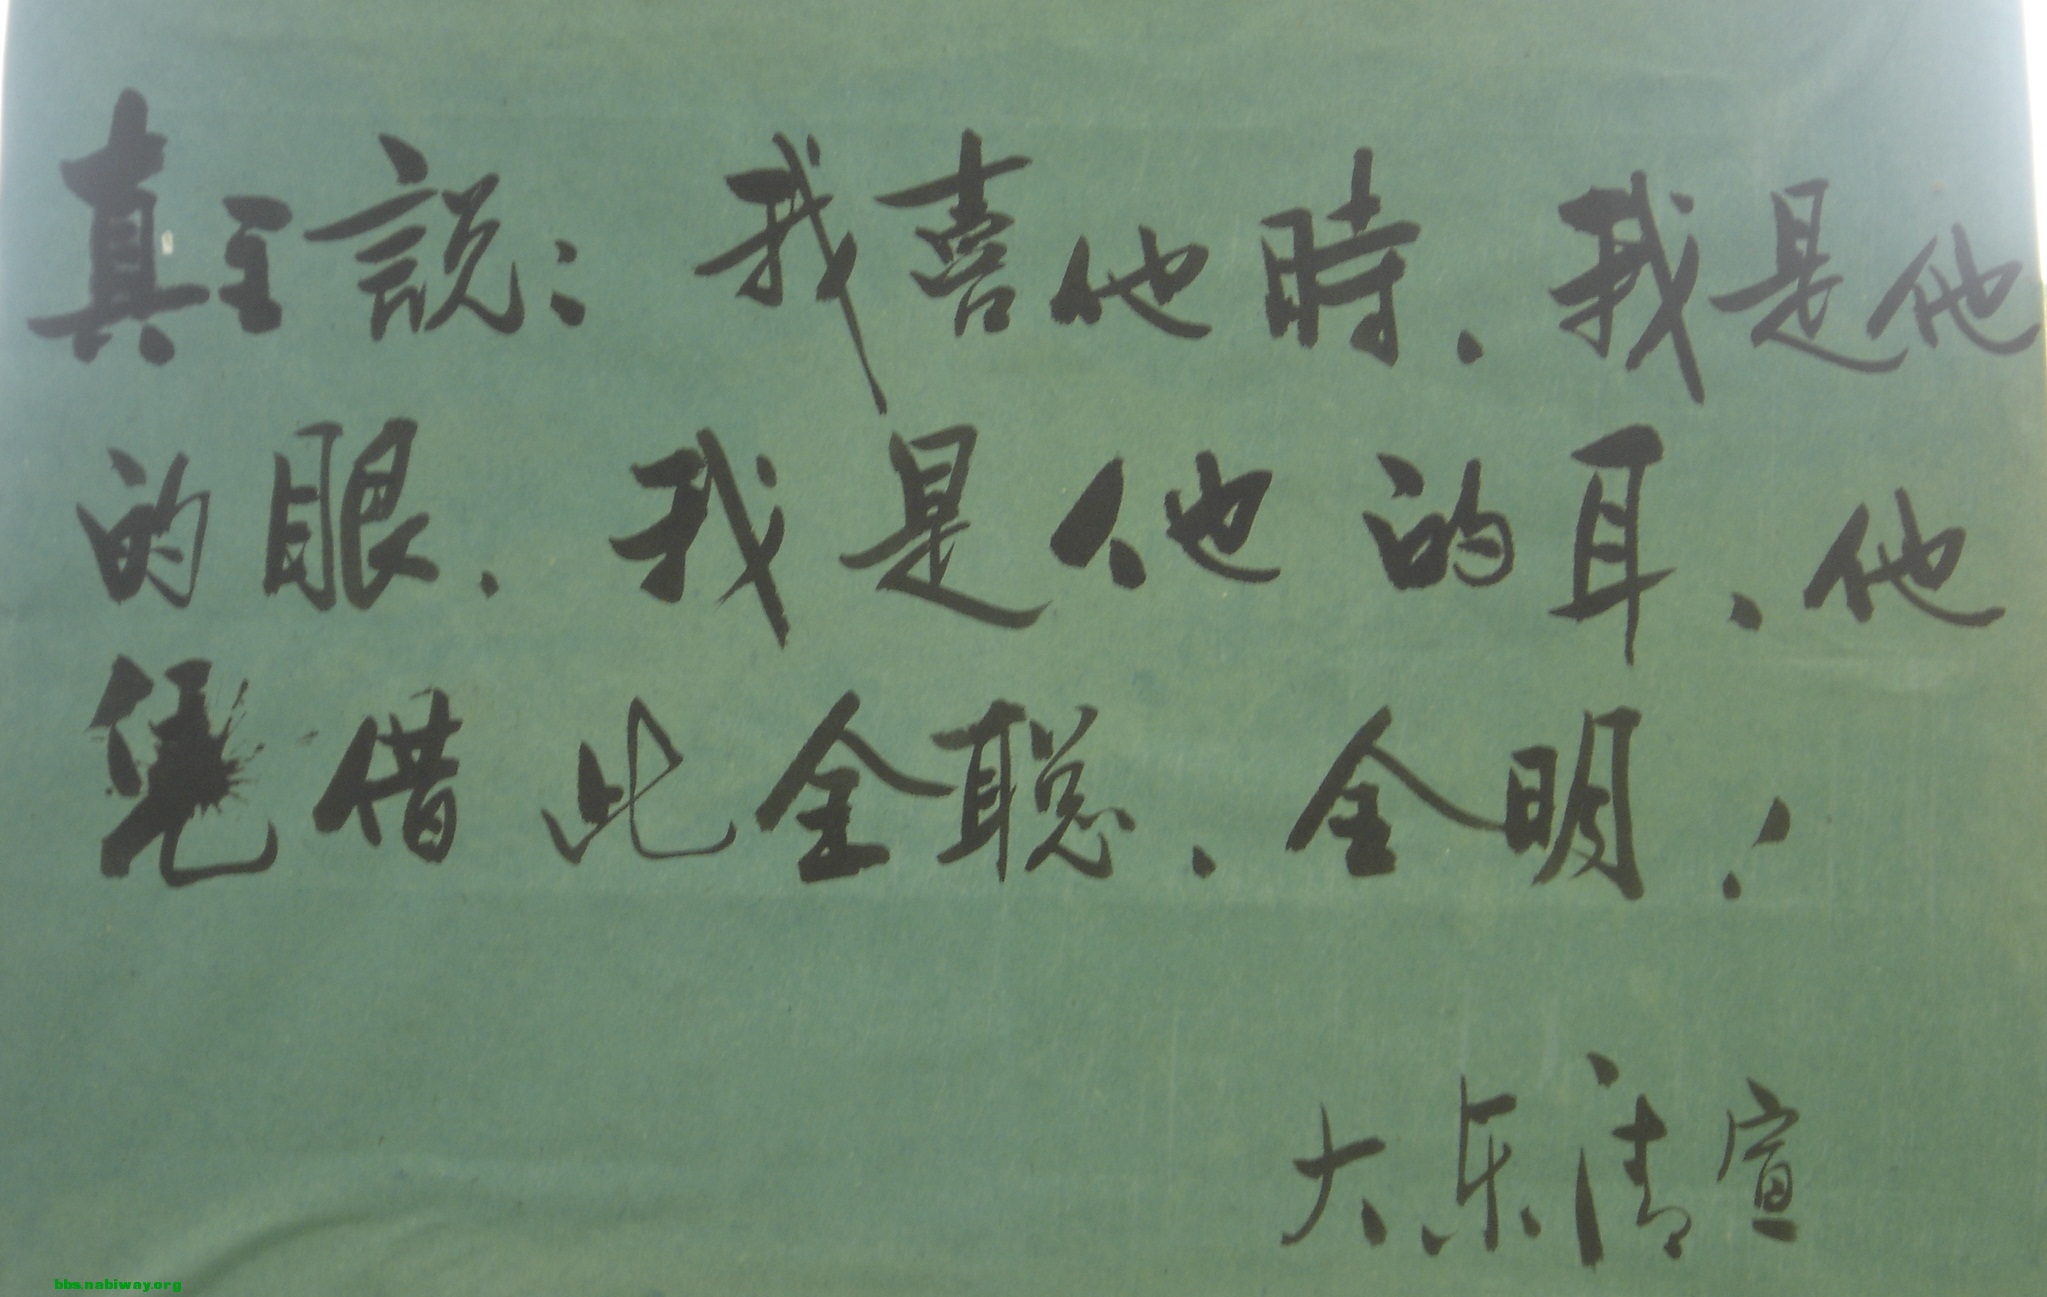 真主説：我喜他時，我是他
的眼，我是他的耳、他
凭借此全聪，全明！
大乐清宣
bbs.nabiway.org